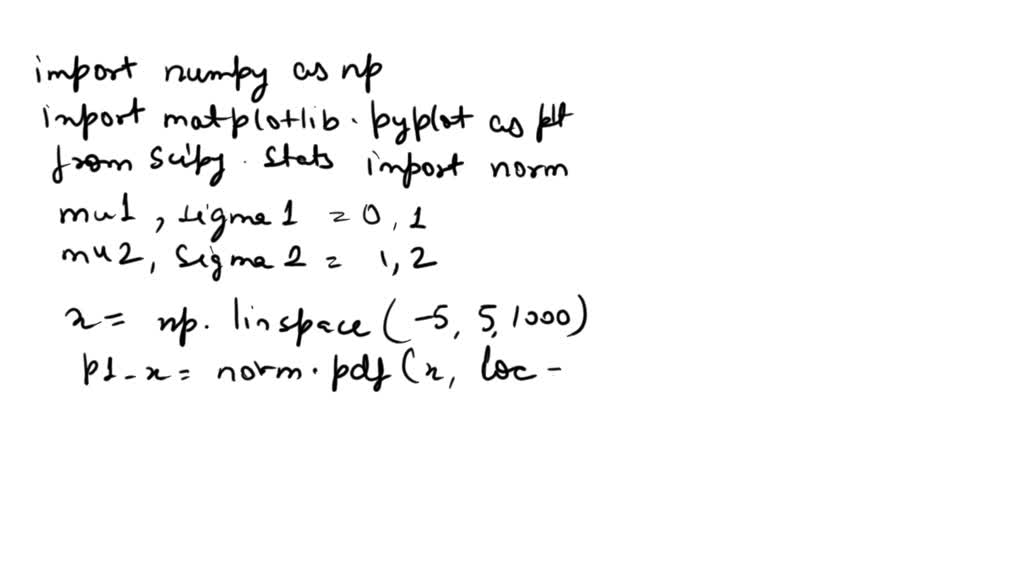 import numpy as np
import matplotlib.pyplot as plt
from scipy.stats import norm
mu1, sigma1 = 0, 1
mu2, sigma2 = 1, 2
x = np.linspace(-5, 5, 1000)
p1_x = norm.pdf(x, loc -